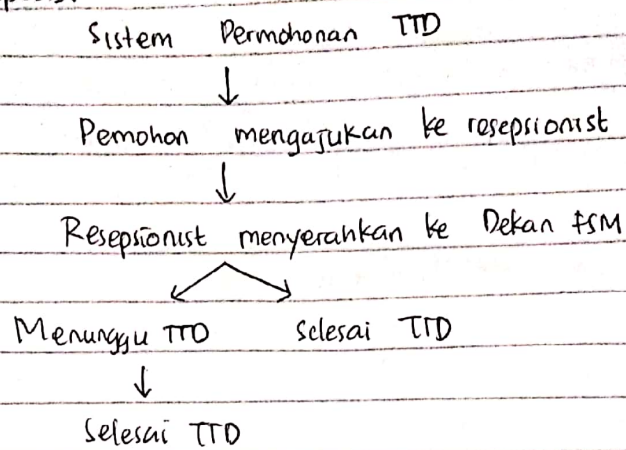 Sistem Permohonan TTD
Pemohon mengajukan ke resepsionist
Resepsionist menyerahkan ke Dekan FSM
Menunggu TTD Selesai TTD
Selesai TTD